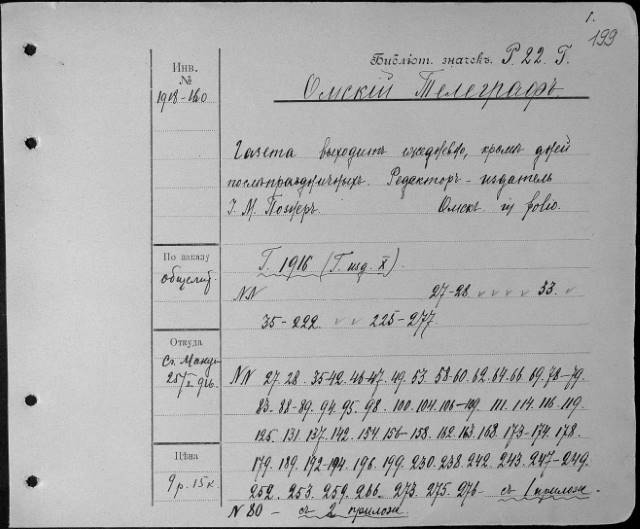 1.
199
Библіот. значекъ. Р. 22. Г.
Омскій Телеграфъ.
Инв.
№
1918-160
Газета выходитъ ежедневно, кромѣ дней
послѣпраздничныхъ. Редакторъ-издатель
І. М. Познеръ. Омскъ in folio.
По заказу
общелит.
Г. 1916 (Г. изд. X).
NN 27-28 v v v v 33. v
35-222 v v 225-277.
Откуда
Ст. Манул.
NN 27. 28. 35-42. 46-47. 49. 53. 58-60. 62. 64. 66. 69. 78-79.
83. 88-89. 94. 95. 98. 100. 104. 106-109. 111. 114. 116. 119.
125. 131. 137. 142. 154. 156-158. 162. 163. 168. 173-174. 178.
179. 189. 192-194. 196. 199. 230. 238. 242. 243. 247-249.
252. 253. 259. 266. 273. 275. 276 - съ 1 прилож.
N 80 - съ 2 прилож.
Цѣна
9 р. 15 к.